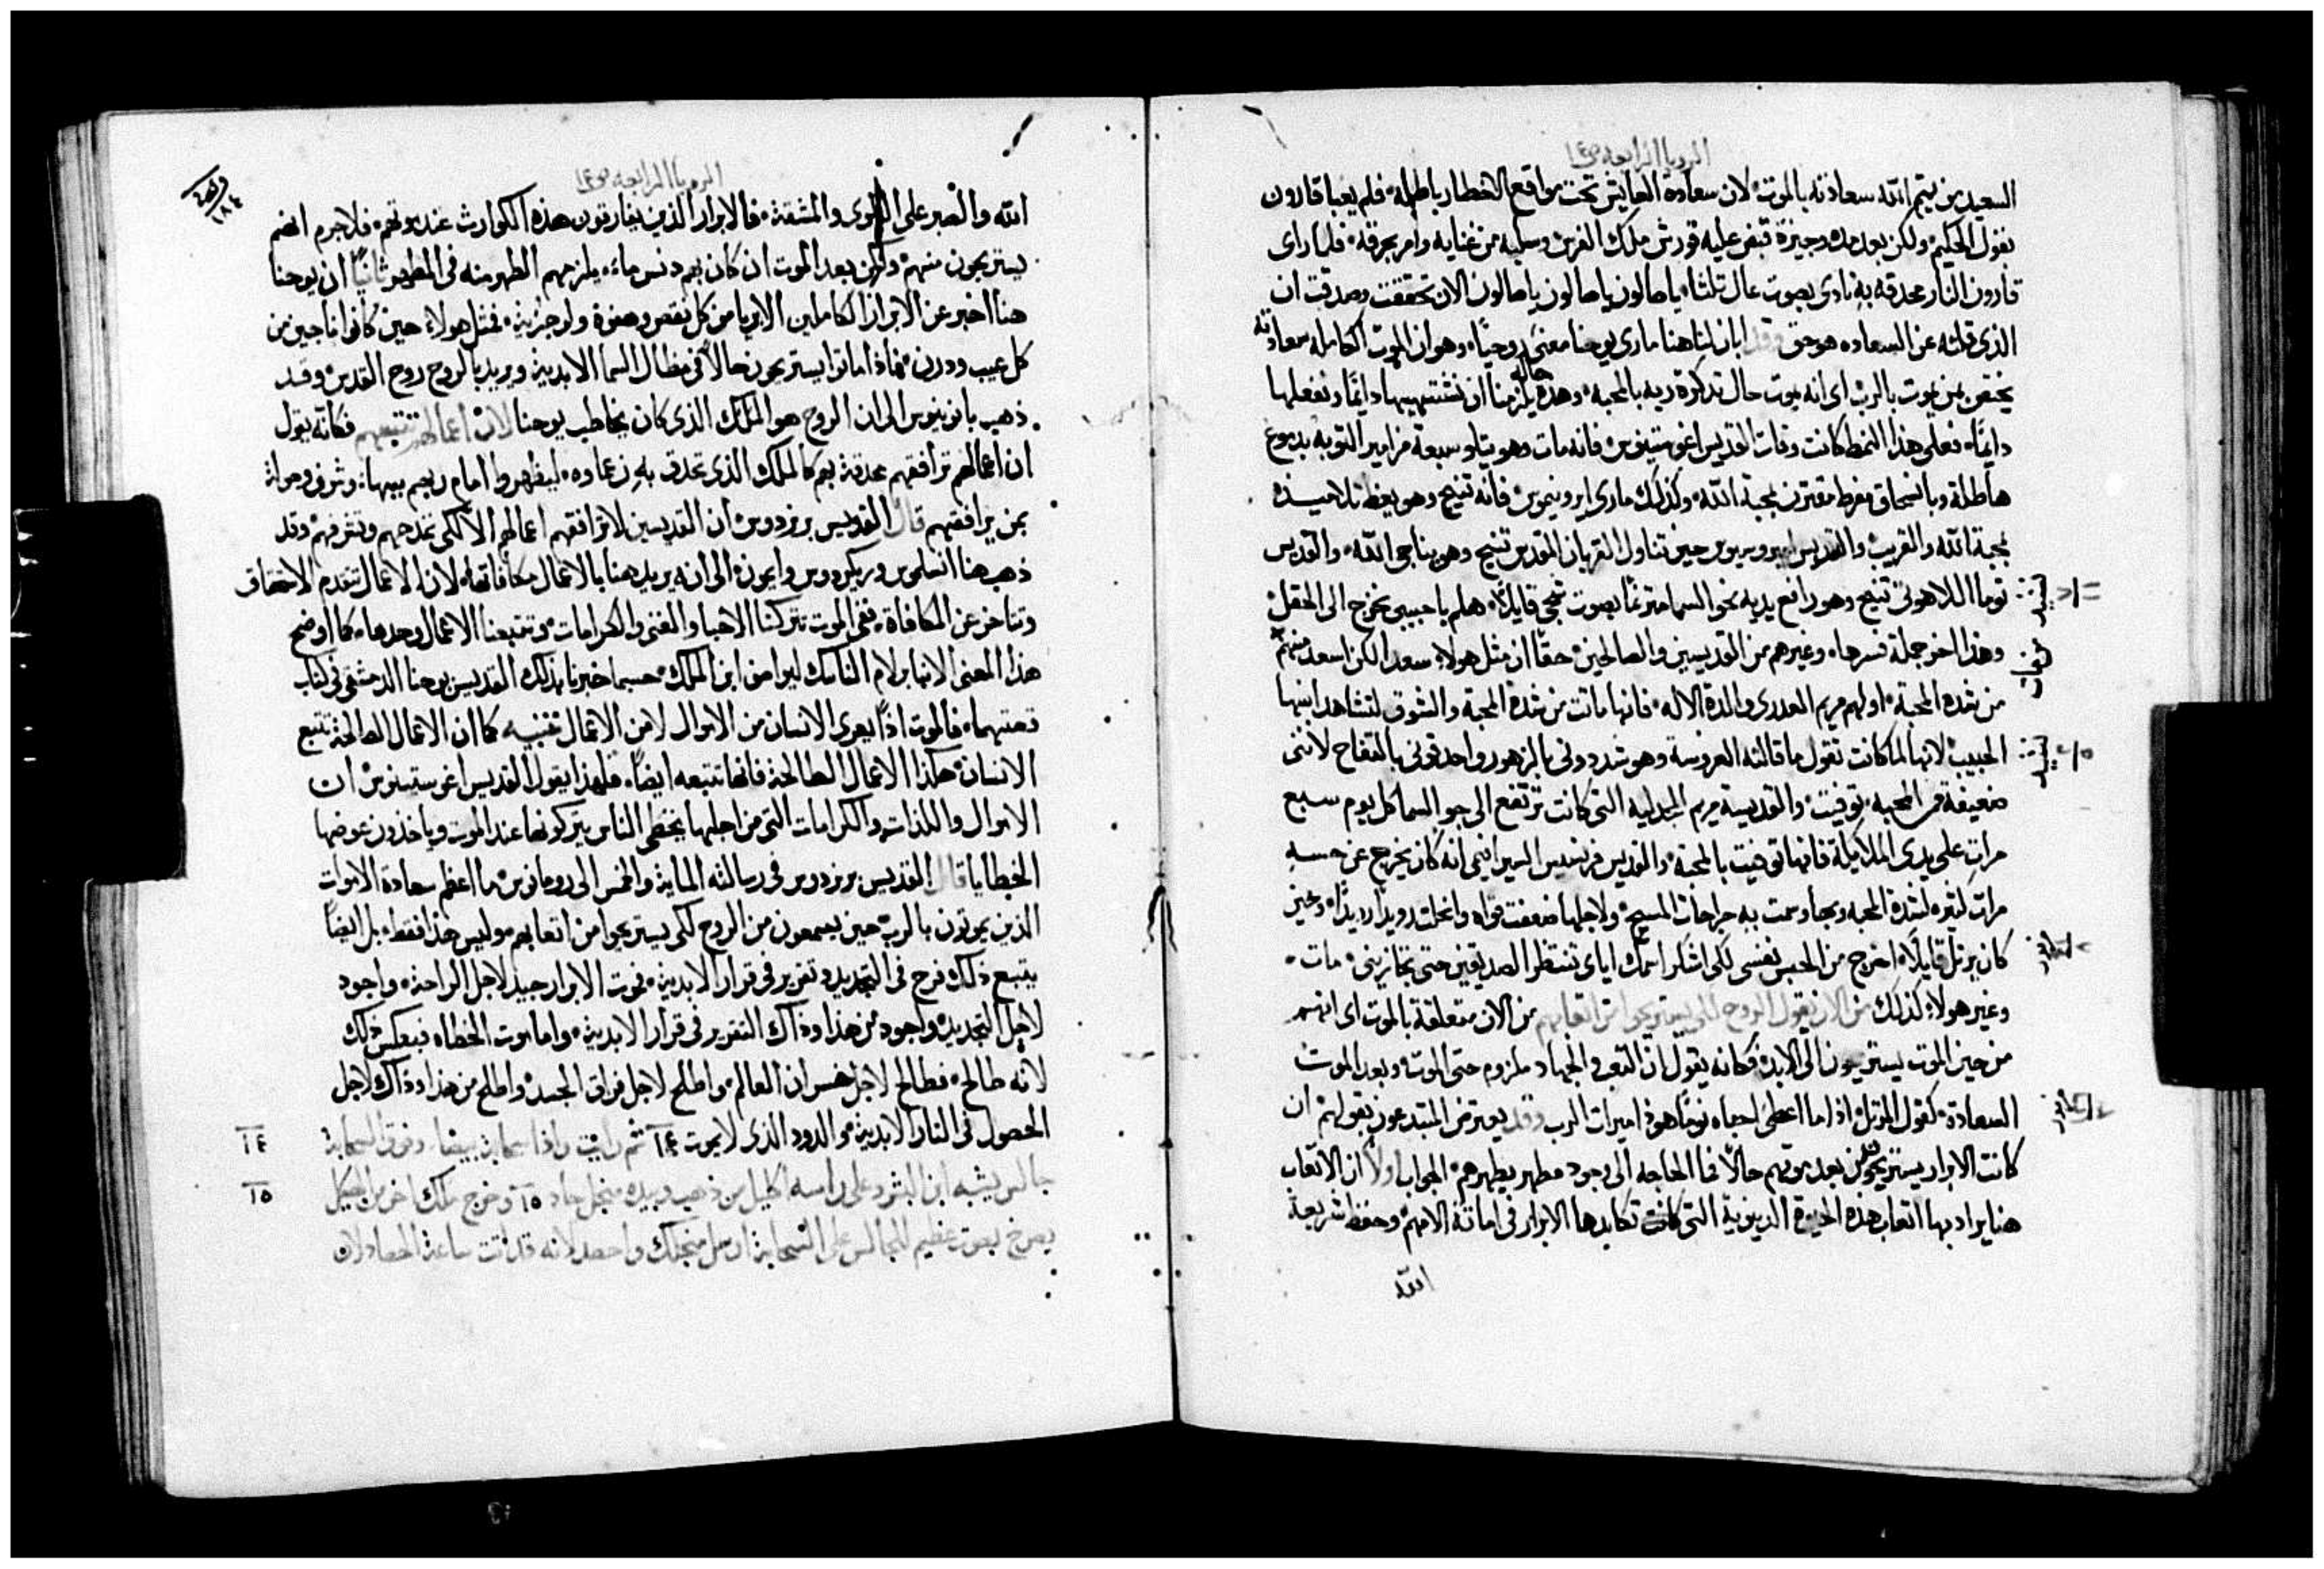 الرويا الرابعه ص ١٤
السعيد من يتم الله سعادته بالموت لان سعادة العايش تحت مواقع الاخطار باطله فلم يعبا قارون
بقول الحكيم ولكن بعد مدة وجيزة قبض عليه قورش ملك الفرس وسلبه من غنايه وامر بحرقه فلما راى
قارون النار محدقه به نادى بصوت عال ثلثا يا صالون يا صالون يا صالون الان تحققت وصدقت ان
الذى قلته عن السعاده هو حق وقد ابان لنا هنا مارى يوحنا معنى روحيا وهو ان الموت الكامله سعادته
يختص بمن يموت بالرب اى انه يموت حال تذكرة ربه بالمحبة وهذه حاله يلزمنا ان نشتهيها دايما ونفعلها
دايما فعلى هذا النمط كانت وفات القديس اغوستينوس فانه مات وهو يتلو سبعة مزامير التوبه بدموع
هاطلة وبانسحاق مفرط مقترن بمحبة الله وكذلك مارى ايرونيموس فانه تنيح وهو يعظ تلاميذه
بمحبة الله والقريب والقديس امبروسيوس حين تناول القربان المقدس تنيح وهو يناجى الله والقديس
توما اللاهوتى تنيح وهو رافع يديه نحو السما مترنما بصوت شجى قايلا هلم يا حبيبى نخرج الى الحقل
وهذا اخر جملة فسرها وغيرهم من القديسين والصالحين حقا ان مثل هولاء سعدا لكن اسعد منهم
من شده المحبة اولهم مريم العدرى والدة الاله فانها ماتت من شدة المحبة والشوق لتشاهد ابنها
الحبيب لانها لما كانت تقول ما قالته العروسة وهو شددونى بالزهور واحدقونى بالتفاح لاننى
ضعيفة من المحبه توفيت والقديسة مريم المجدليه التى كانت ترتفع الى جو السما كل يوم سبع
مرات على يدى الملايكة فانها توفيت بالمحبة والقديس فرنسيس السيرافيمى انه كان يخرج عن حسه
مرات كثيره لشدة المحبه وبما وسمت به جراحات المسيح ولاجلها ضعفت قواه وانحلت رويدا رويدا وحين
كان يرتل قايلا اخرج من الحبس نفسى لكى اشكر اسمك اياى تنتظر الصديقين حتى تجازينى مات
وغير هولاء كذلك من الان يقول الروح لكى يستريحوا من اتعابهم من الان متعلقة بالموت اى انهم
من حين الموت يستريحون الى الابد فكانه يقول ان التعب والجهاد ملزوم حتى الموت وبعد الموت
السعادة كقول المرتل اذا ما اعطى احباه نوما هوذا ميراث الرب وقد يعترض المبتدعون بقولهم ان
كانت الابرار يستريحون من بعد موتهم حالا فما الحاجه الى وجود مطهر يطهرهم الجواب اولا ان الاتعاب
هنا يراد بها اتعاب هذه الحيوة الدنيوية التى كانت تكابدها الابرار فى اماتة الامهم وحفظ شريعة
الله
الرويا الرابعه ص ١٤
١٨٤
الله والصبر على البلوى والمشقة فالابرار الذين يفارقون هذه الكوارث عند موتهم فلا جرم انهم
يستريحون منهم ولكن بعد الموت ان كان بهم دنس ماء يلزمهم الطهر منه فى المطهر ثانيا ان يوحنا
هنا اخبر عن الابرار الكاملين الابريا من كل نقص وهفوة ولو جزية فمثل هولاء حين كانوا ناجين من
كل عيب ودرن فاذا ماتوا يستريحون حالا فى مظال السما الابدية ويريد بالروح روح القدس وقد
ذهب بانونيوس الى ان الروح هو الملك الذى كان يخاطب يوحنا لان اعمالهم تتبعهم فكانه يقول
ان اعمالهم ترافقهم محدقة بهم كالملك الذى تحدق به زعماوه ليظهروا امام ربهم ببهاء وشرف وموازة
بمن يرافقهم قال القديس برنردوس ان القديسين لا ترافقهم اعمالهم الا لكى تمدحهم وتشرفهم وقد
ذهب هنا انسلموس وريكردوس وايمون الى انه يريد هنا بالاعمال مكافاتها لان الاعمال تتقدم الاستحقاق
وتتاخر عن المكافاة ففى الموت تتركنا الاحبا والغنى والكرامات وتتبعنا الاعمال وحدها كما اوضح
هذا المعنى الانبا برلام الناسك ليواصف ابن الملك حسبما خبرنا بذلك القديس يوحنا الدمشقى فى كتاب
قصتهما فالموت اذا يعرى الانسان من الاموال لا من الاعمال كما ان الاعمال الطالحة تتبع
الانسان هكذا الاعمال الصالحة فانها تتبعه ايضا فلهذا يقول القديس اغوستينوس ان
الاموال واللذات والكرامات التى من اجلها يخطى الناس يتركونها عند الموت وياخذون عوضها
الخطايا قال القديس برنردوس فى رسالته الماية والخمس الى رومانوس ما اعظم سعادة الاموات
الذين يموتون بالرب حين يسمعون من الروح لكى يستريحوا من اتعابهم وليس هذا فقط بل ايضا
يتبع ذلك فرح فى التجديد وتقرير فى قرار الابدية فموت الابرار جيد لاجل الراحة واجود
لاجل التجديد واجود من هذا وذاك التقرير فى قرار الابدية واما موت الخطاه فبعكس ذلك
لانه طالح فطالح لاجل خسران العالم واطلح لاجل فراق الجسد واطلح من هذا وذاك لاجل
الحصول فى النار الابدية والدود الذى لا يموت ١٤ ثم رايت واذا سحابة بيضاء وفوق السحابة
١٤
جالس يشبه ابن البشر وعلى راسه اكليل من ذهب وبيده منجل حاد ١٥ وخرج ملك اخر من الهيكل
١٥
يصرخ بصوت عظيم للجالس على السحابة ارسل منجلك واحصد لانه قد اتت ساعة الحصاد لان